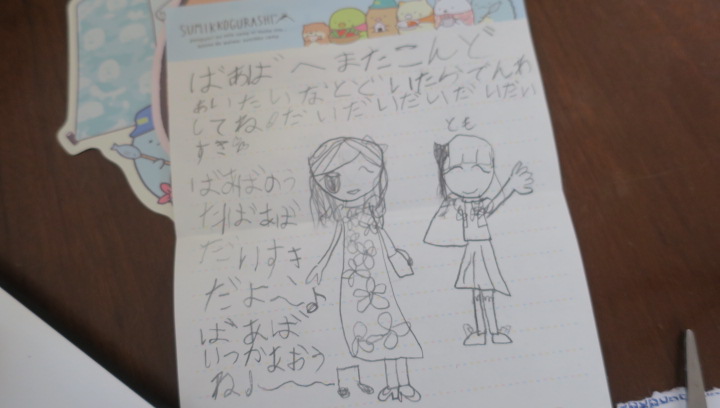 SUMIKKOGURASHI
ばあばへ またこんど
あいたいなとどいたらでんわ
してね♪だいだいだいだいだい
すき
とも
ばあばのう
たばあば
だいすき
だよ〜♪
ばあば
いつかあおう
ね♪